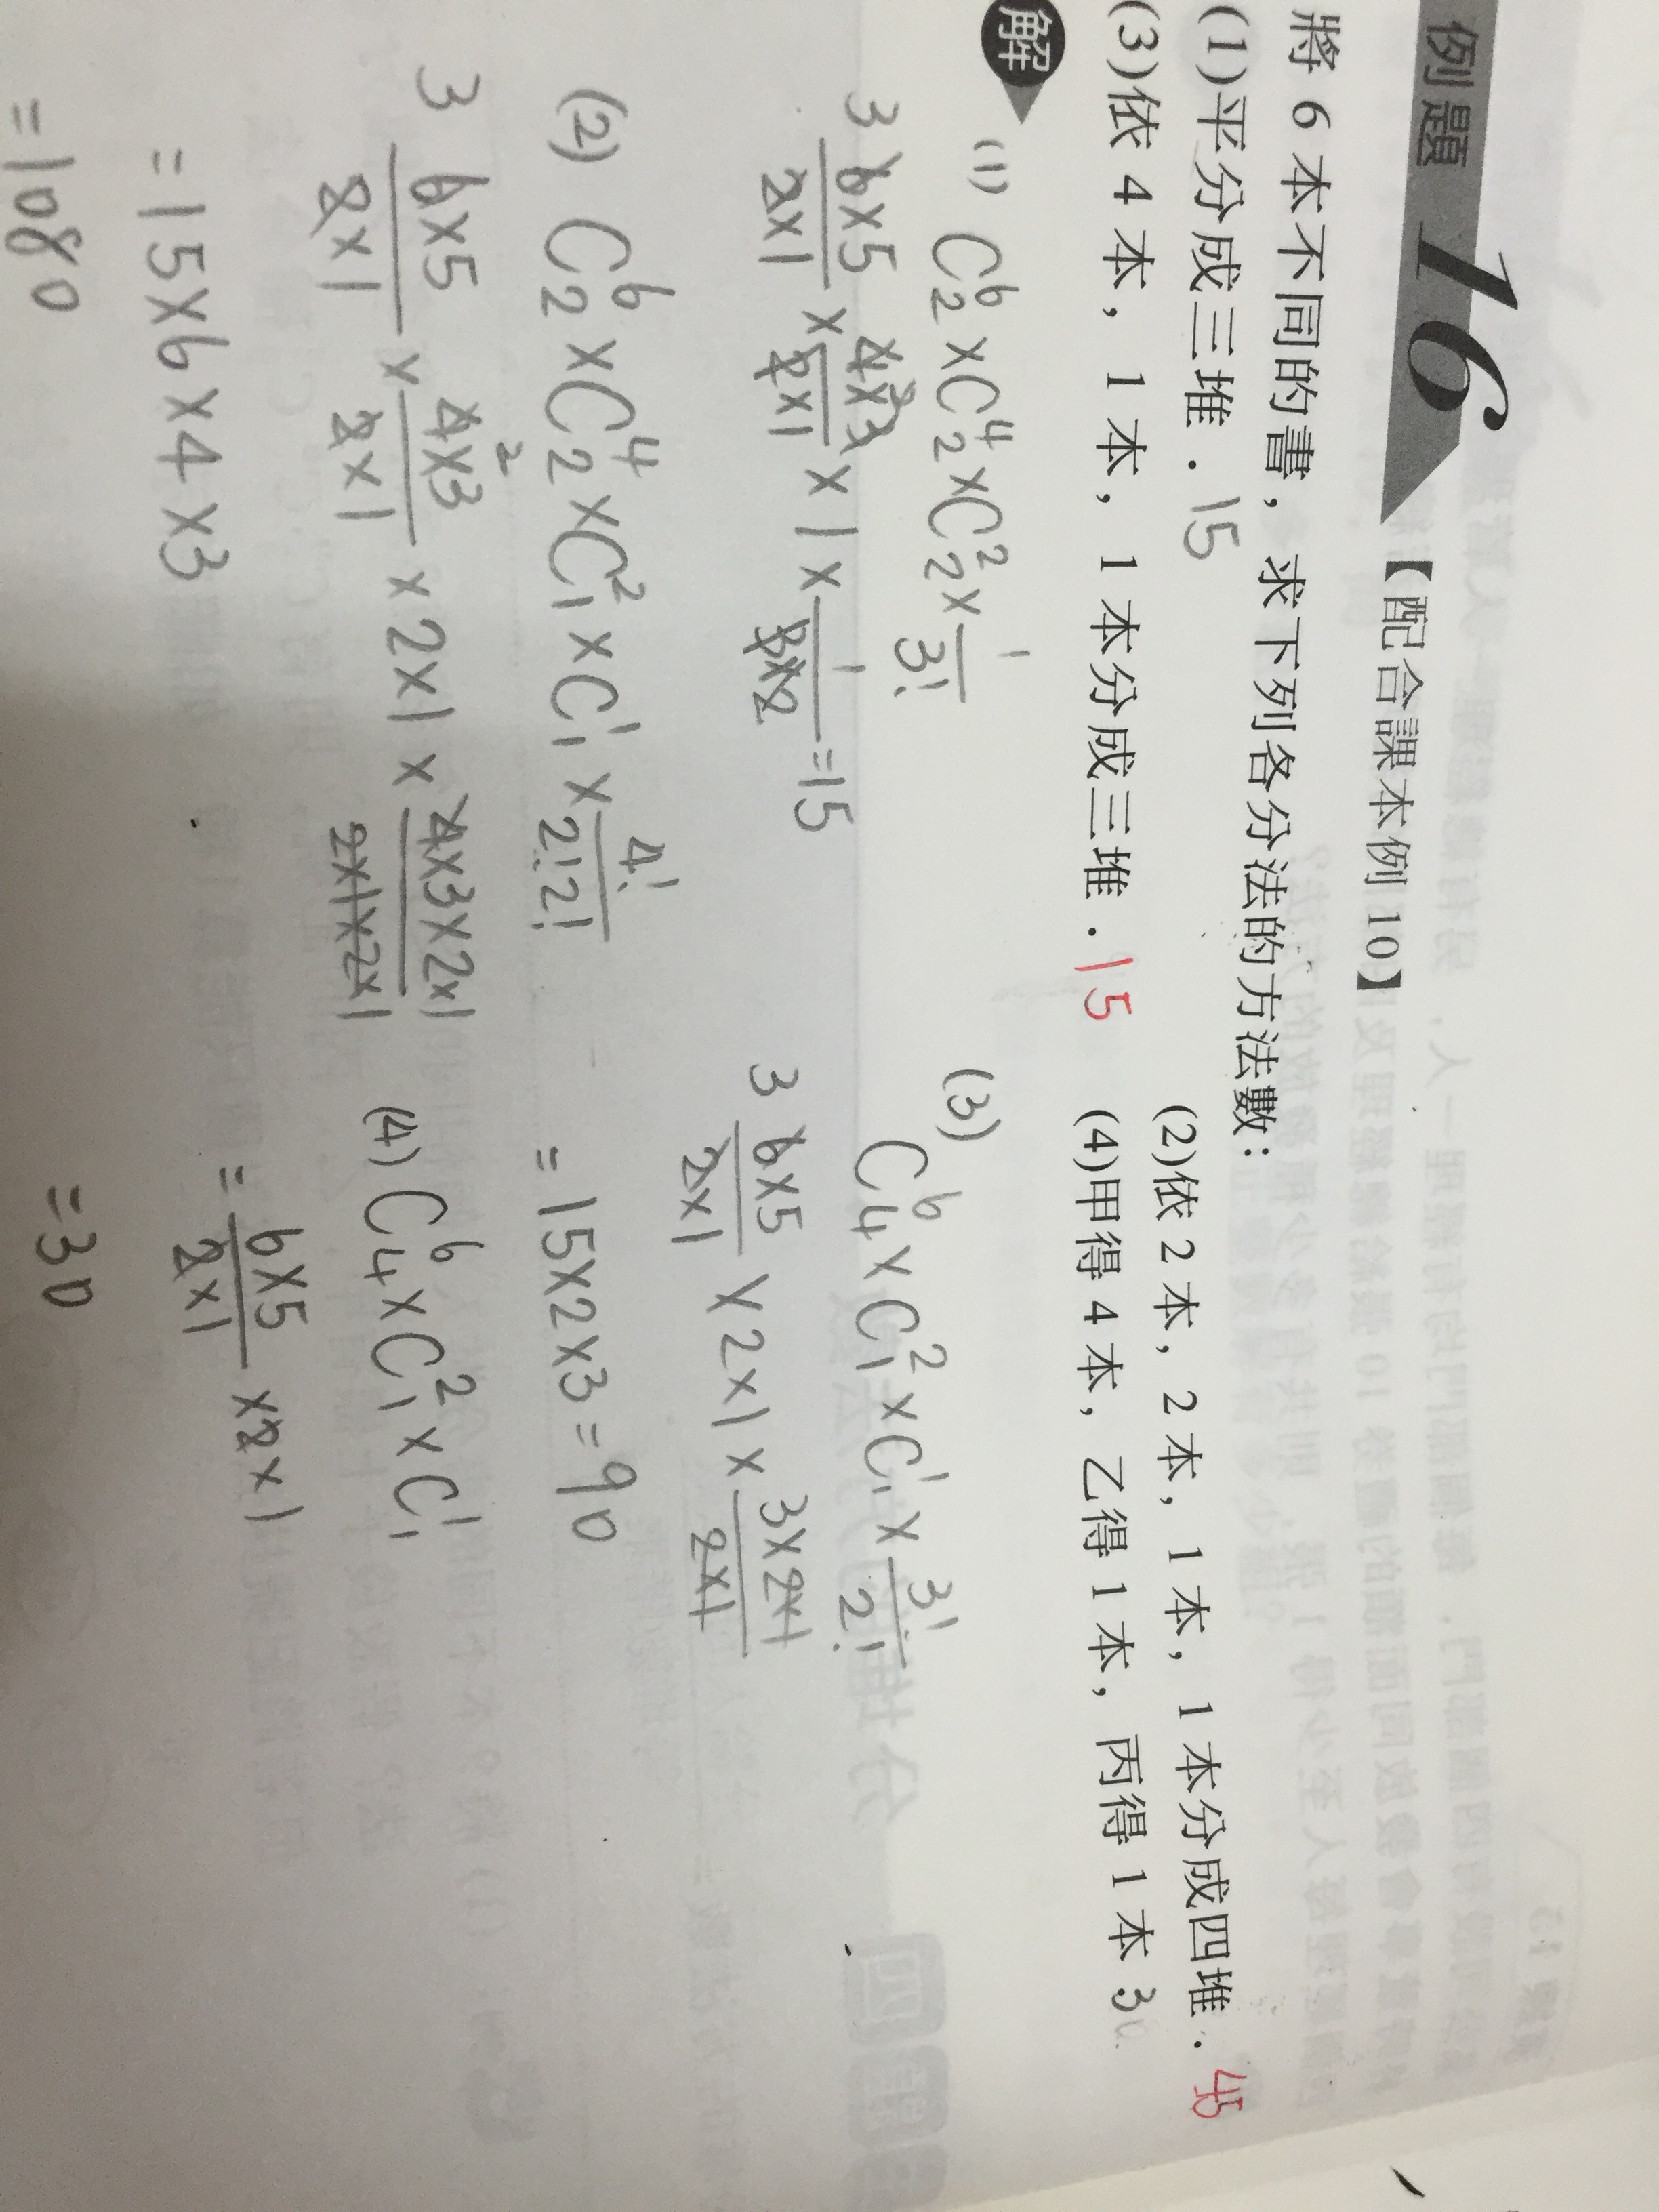 例題 16 【配合課本例 10】
將 6 本不同的書，求下列各分法的方法數：
(1)平分成三堆．15
(2)依 2 本，2 本，1 本，1 本分成四堆．45
(3)依 4 本，1 本，1 本分成三堆．15
(4)甲得 4 本，乙得 1 本，丙得 1 本 30
解
(1) C⁶₂×C⁴₂×C²₂×1/3!
3 6×5/2×1 × 4×3/2×1 ×1× 1/3×2 =15
(2) C⁶₂×C⁴₂×C²₁×C¹₁×4!/2!2!
3 6×5/2×1 × 4×3/2×1 2 ×2×1× 4×3×2×1/2×1×2×1
=15×6×4×3
=1080
(3)
C⁶₄×C²₁×C¹₁×3!/2!
3 6×5/2×1 ×2×1× 3×2×1/2×1
=15×2×3=90
(4) C⁶₄×C²₁×C¹₁
= 6×5/2×1 ×2×1
=30